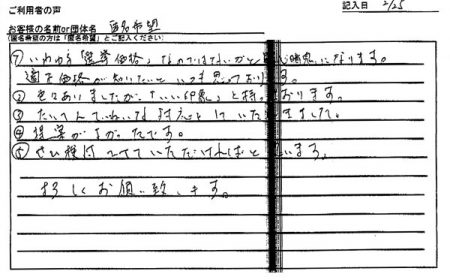 ご利用者の声
記入日 2/25
お客様の名前or団体名 匿名希望
(匿名希望の方は「匿名希望」とご記入ください)
① いわゆる「葬儀価格」なのではないかと になります。
適正価格が知りたいといつも思っております。
② 色々ありましたが「いい印象」と持っております。
③ たいへんていねいな対応をしていただきました。
④ 提案が よかったです。
⑤ ぜひ検討 していただければと います。
よろしくお願い致します。